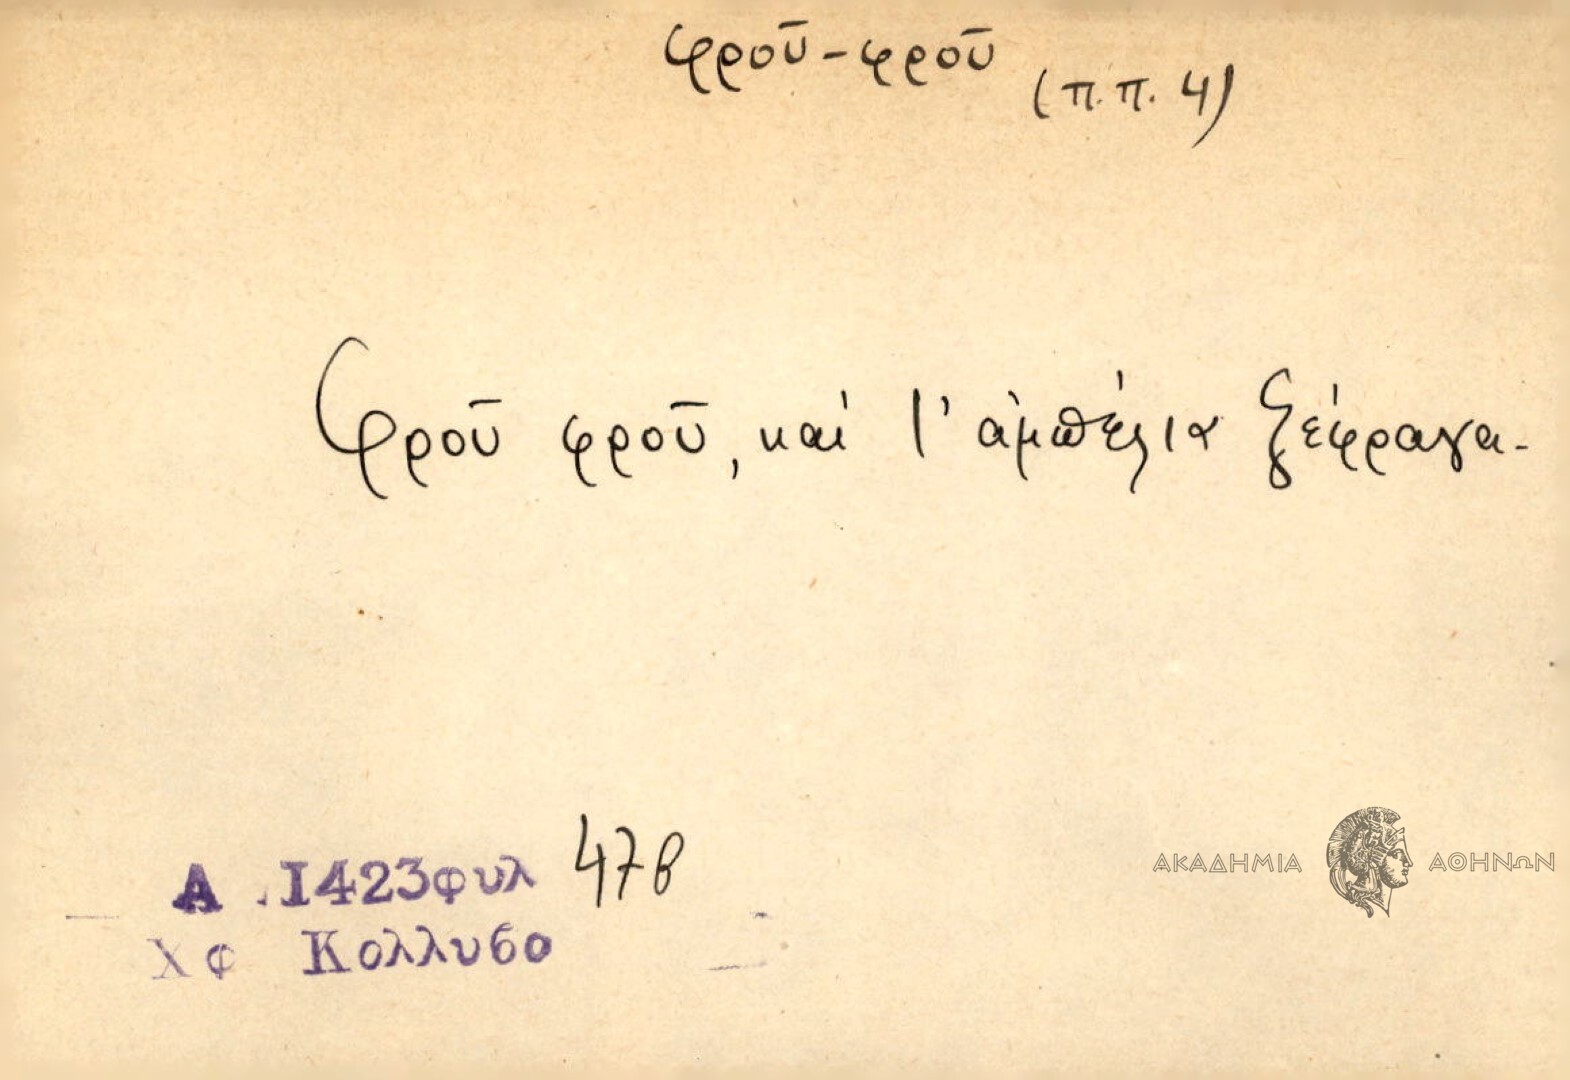 φροῦ-φροῦ
(π.π. 4)
Φροῦ φροῦ, καὶ τ' ἀμπέλια ξέφραγα.
Α 1423φυλ 47β
Χφ Κολλυβο
ΑΚΑΔΗΜΙΑ ΑΘΗΝΩΝ